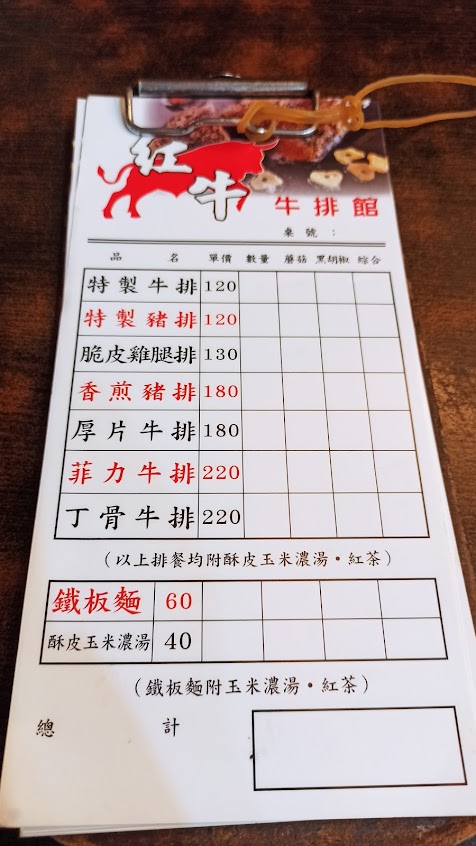 紅牛
牛排館
桌號：
品名 單價 數量 蘑菇 黑胡椒 綜合
特製牛排 120
特製豬排 120
脆皮雞腿排 130
香煎豬排 180
厚片牛排 180
菲力牛排 220
丁骨牛排 220
（以上排餐均附酥皮玉米濃湯・紅茶）
鐵板麵 60
酥皮玉米濃湯 40
（鐵板麵附玉米濃湯・紅茶）
總計